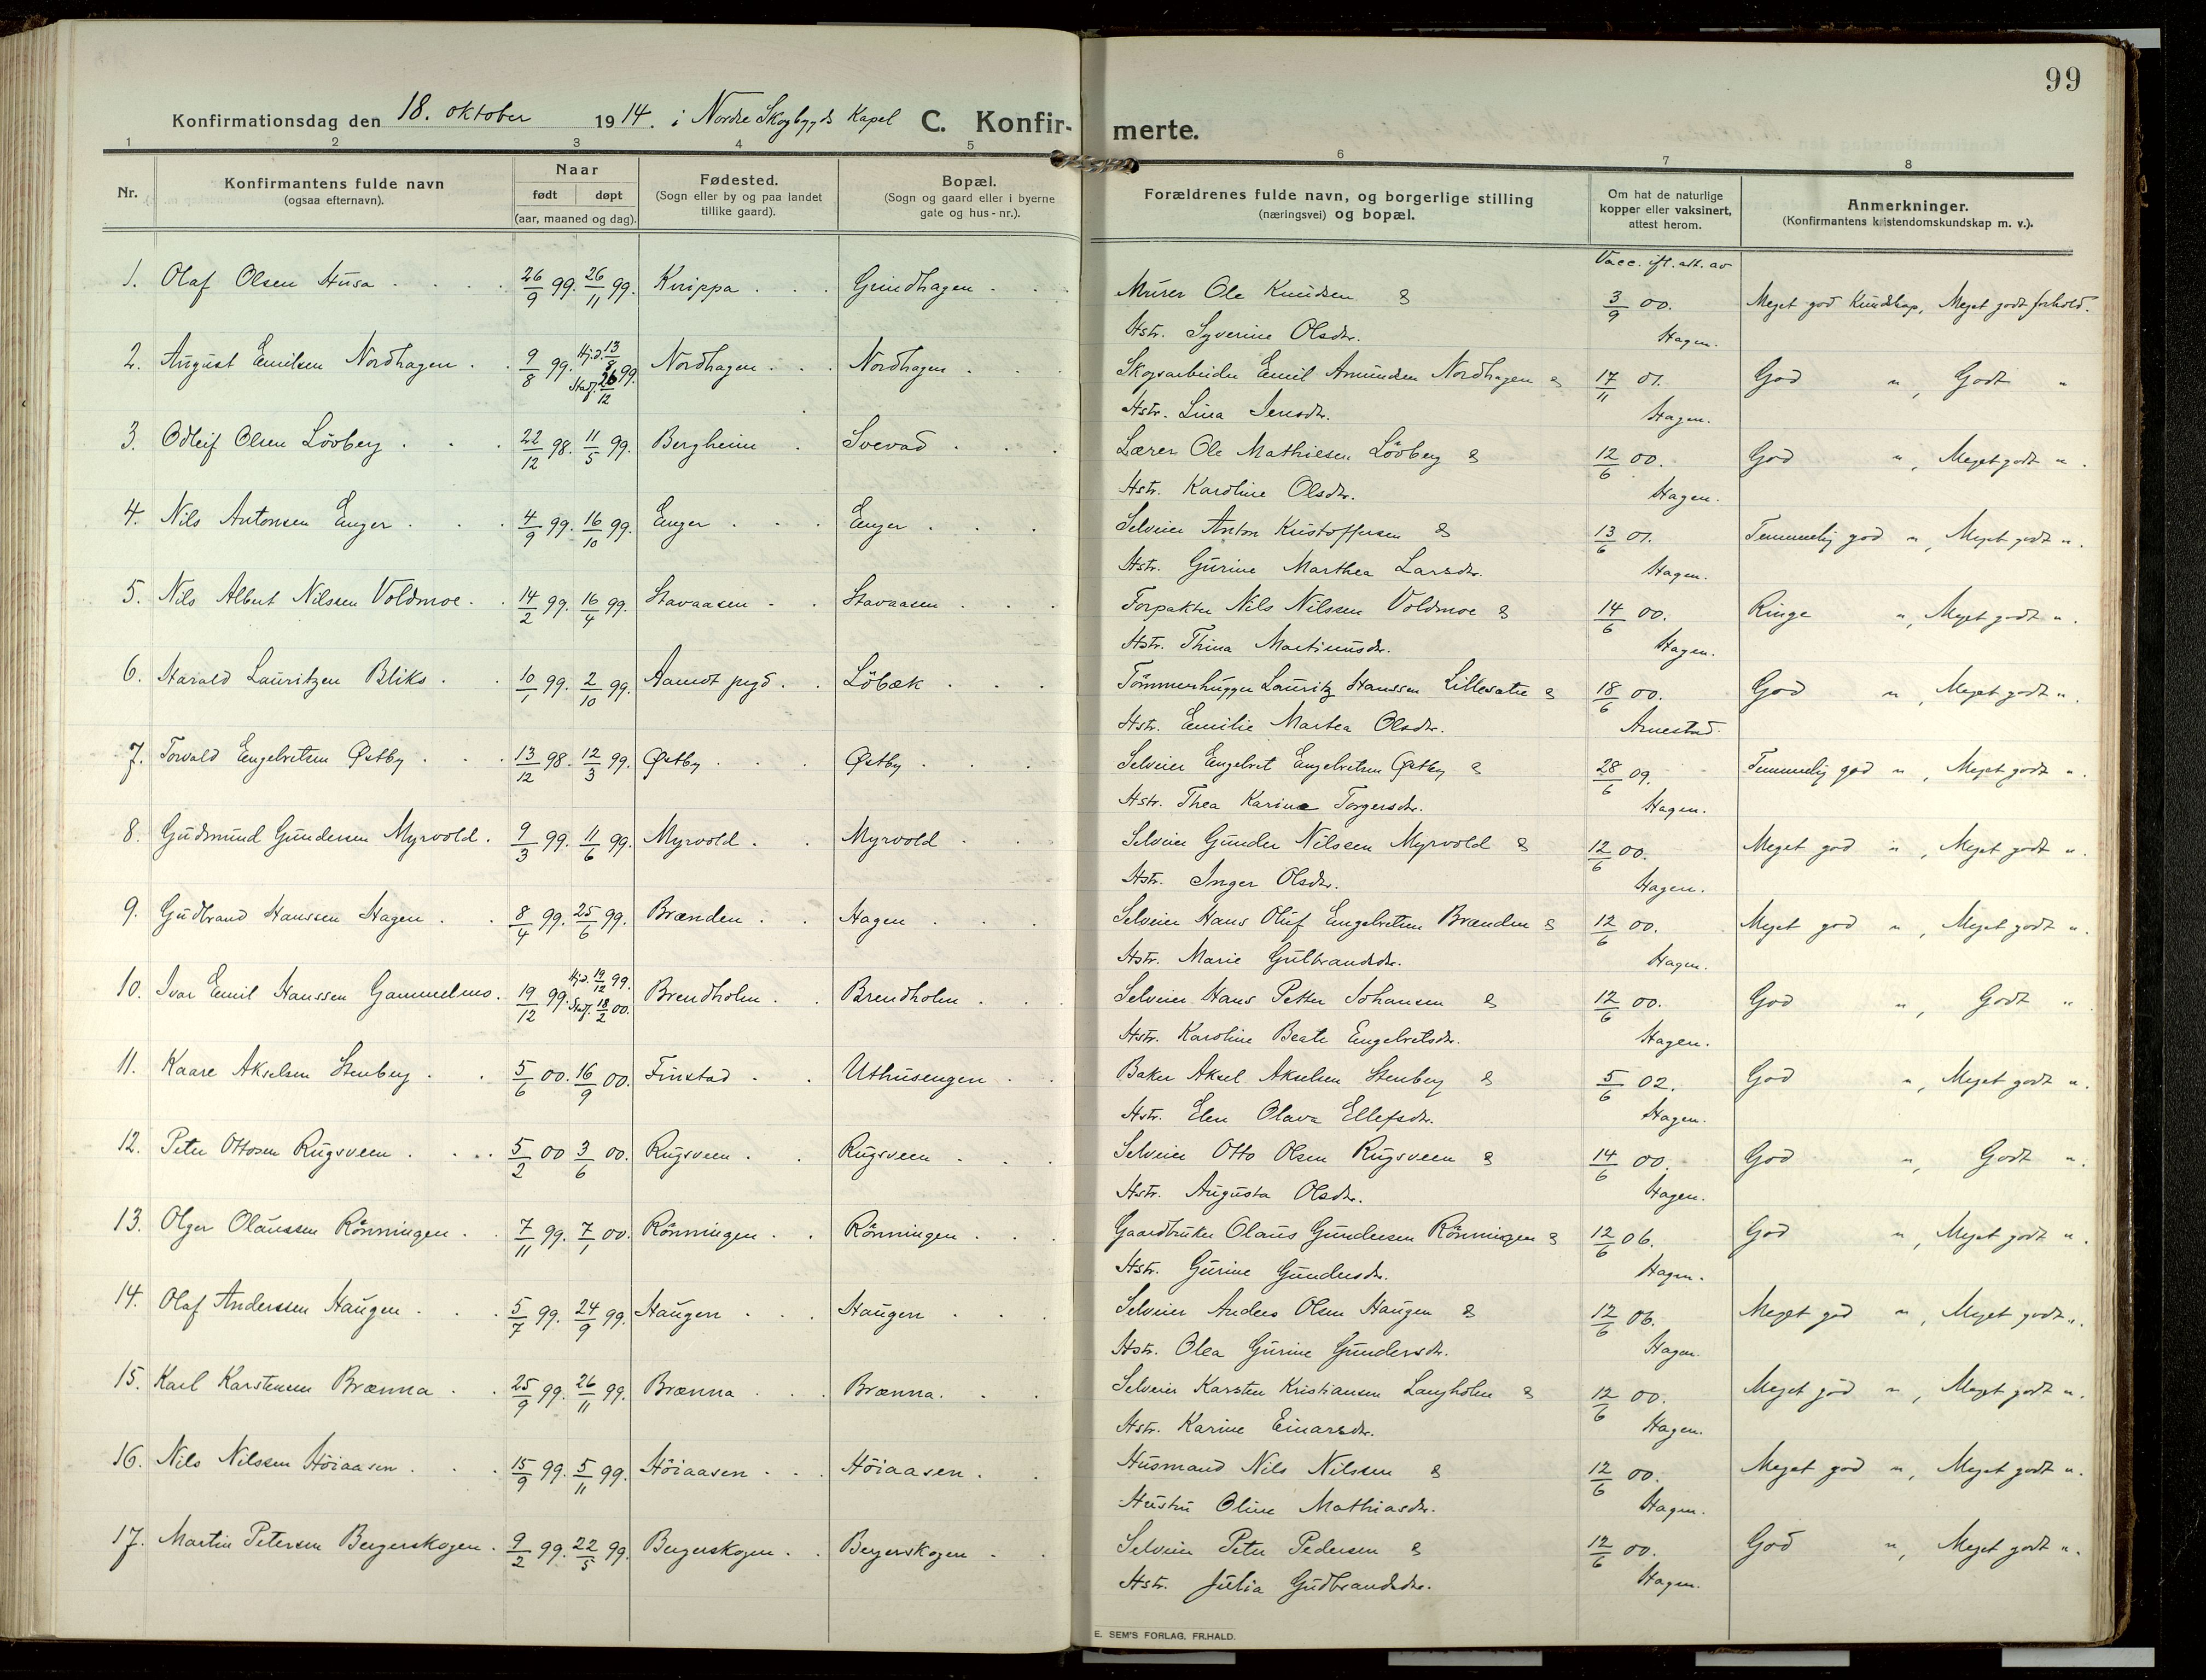 99
Konfirmationsdag den 18. oktober 1914. i Nordre Skogbygds Kapel C. Konfir- merte.
1 2 3 4 5 6 7 8
Nr. Konfirmantens fulde navn (ogsaa efternavn). Naar født døpt (aar, maaned og dag). Fødested. (Sogn eller by og paa landet tillike gaard). Bopæl. (Sogn og gaard eller i byerne gate og hus-nr.). Forældrenes fulde navn, og borgerlige stilling (næringsvei) og bopæl. Om hat de naturlige kopper eller vaksinert, attest herom. Anmerkninger. (Konfirmantens kristendomskundskap m. v.).
Vacc. ifl. att. av
1. Olaf Olsen Husa 26/9 99. 26/11 99. Knippa Grindhagen Murer Ole Knudsen & 3/9 00. Meget god Kundskap, Meget godt forhold.
Hstr. Syverine Olsdtr. Hagen.
2. August Emilsen Nordhagen 9/8 99. Hj.d. 13/8 Stadf. 26/12 99. Nordhagen Nordhagen Skogsarbeider Emil Amundsen Nordhagen & 17/11 01. God " , Godt "
Hstr. Lina Jensdtr. Hagen.
3. Odleif Olsen Lövberg 22/12 98. 11/5 99. Bergheim Svevad Lærer Ole Mathiesen Lövberg & 12/6 00. God " , Meget godt " .
Hstr. Karoline Olsdtr. Hagen.
4. Nils Antonsen Enger 4/9 99. 16/10 99. Enger Enger Selveier Anton Kristoffersen & 13/6 01. Temmelig god " , Meget godt " .
Hstr. Gurine Marthea Larsdtr. Hagen.
5. Nils Albert Nilssen Voldmoe 14/2 99. 16/4 99. Stavaasen Stavaasen Forpakter Nils Nilssen Voldmoe & 14/6 00. Ringe " , Meget godt " .
Hstr. Thina Martinusdtr. Hagen.
6. Harald Lauritzen Bliks 10/1 99. 2/10 99. Aamot prgd. Löbæk Tömmerhugger Lauritz Hanssen Lillesætre & 18/6 00. God " , Meget godt " .
Hstr. Emilie Martea Olsdtr. Arnestad.
7. Torvald Engebretsen Østby 13/12 98. 12/3 99. Østby Østby Selveier Engebret Engebretsen Østby & 28/6 09. Temmelig god " , Meget godt " .
Hstr. Thea Karine Torgersdtr. Hagen.
8. Gudmund Gundersen Myrvold 9/3 99. 11/6 99. Myrvold Myrvold Selveier Gunder Nilssen Myrvold & 12/6 00. Meget god " , Meget godt " .
Hstr. Inger Olsdtr. Hagen.
9. Gudbrand Hanssen Hagen 8/4 99. 25/6 99. Brænden Hagen Selveier Hans Oluf Engebretsen Brænden & 12/6 00. Meget god " , Meget godt " .
Hstr. Marie Gulbrandsdtr. Hagen.
10. Ivar Emil Hanssen Gammelmo. 19/12 99. Hj.d. 19/12 99. Stadf. 18/2 00. Brendholen Brendholen Selveier Hans Petter Johansen & 12/6 00. God " , Godt "
Hstr. Karoline Beate Engebretsdtr. Hagen.
11. Kaare Akselsen Stenberg 5/6 00. 16/9 00. Finstad Uthusengen Baker Aksel Akselsen Stenberg & 5/6 02. God " , Meget godt " .
Hstr. Elen Olava Ellefsdtr. Hagen.
12. Peter Ottosen Rugsveen 5/2 00 3/6 00. Rugsveen Rugsveen Selveier Otto Olsen Rugsveen & 14/6 00. God " , Godt " .
Hstr. Augusta Olsdtr. Hagen.
13. Olger Olaussen Rönningen 7/11 99. 7/1 00. Rönningen Rönningen Gaardbruker Olaus Gundersen Rönningen & 12/6 06. God " , Meget godt " .
Hstr. Gurine Gundersdtr. Hagen.
14. Olaf Anderssen Haugen 5/7 99. 24/9 99. Haugen Haugen Selveier Anders Olsen Haugen & 12/6 06. Meget god " , Meget godt " .
Hstr. Olea Gurine Gundersdtr. Hagen.
15. Karl Karstensen Brænna 25/9 99. 26/11 99. Brænna Brænna Selveier Karsten Kristiansen Langholen & 12/6 00. Meget god " , Meget godt " .
Hstr. Karine Einarsdtr. Hagen.
16. Nils Nilssen Höiaasen 15/9 99. 5/11 99. Höiaasen Höiaasen Husmand Nils Nilssen & 12/6 00. Meget god " , Meget godt " .
Hustru Oline Mathiasdtr. Hagen.
17. Martin Petersen Bergerskogen 9/2 99. 22/5 99. Bergerskogen Bergerskogen Selveier Peter Pedersen & 12/6 00. God " , Meget godt " .
Hstr. Julia Gudbrandsdtr. Hagen.
E. SEM'S FORLAG, FR.HALD.